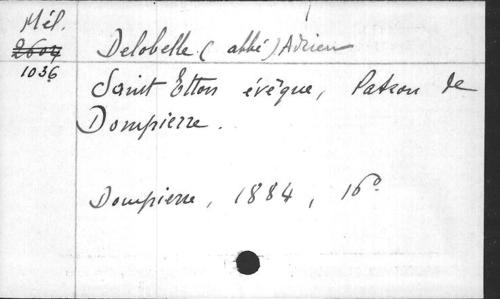 Mél.
2604
1036
Delobelle (abbé) Adrien
Saint Etton évêque, Patron de
Dompierre.
Dompierre, 1884, 16°